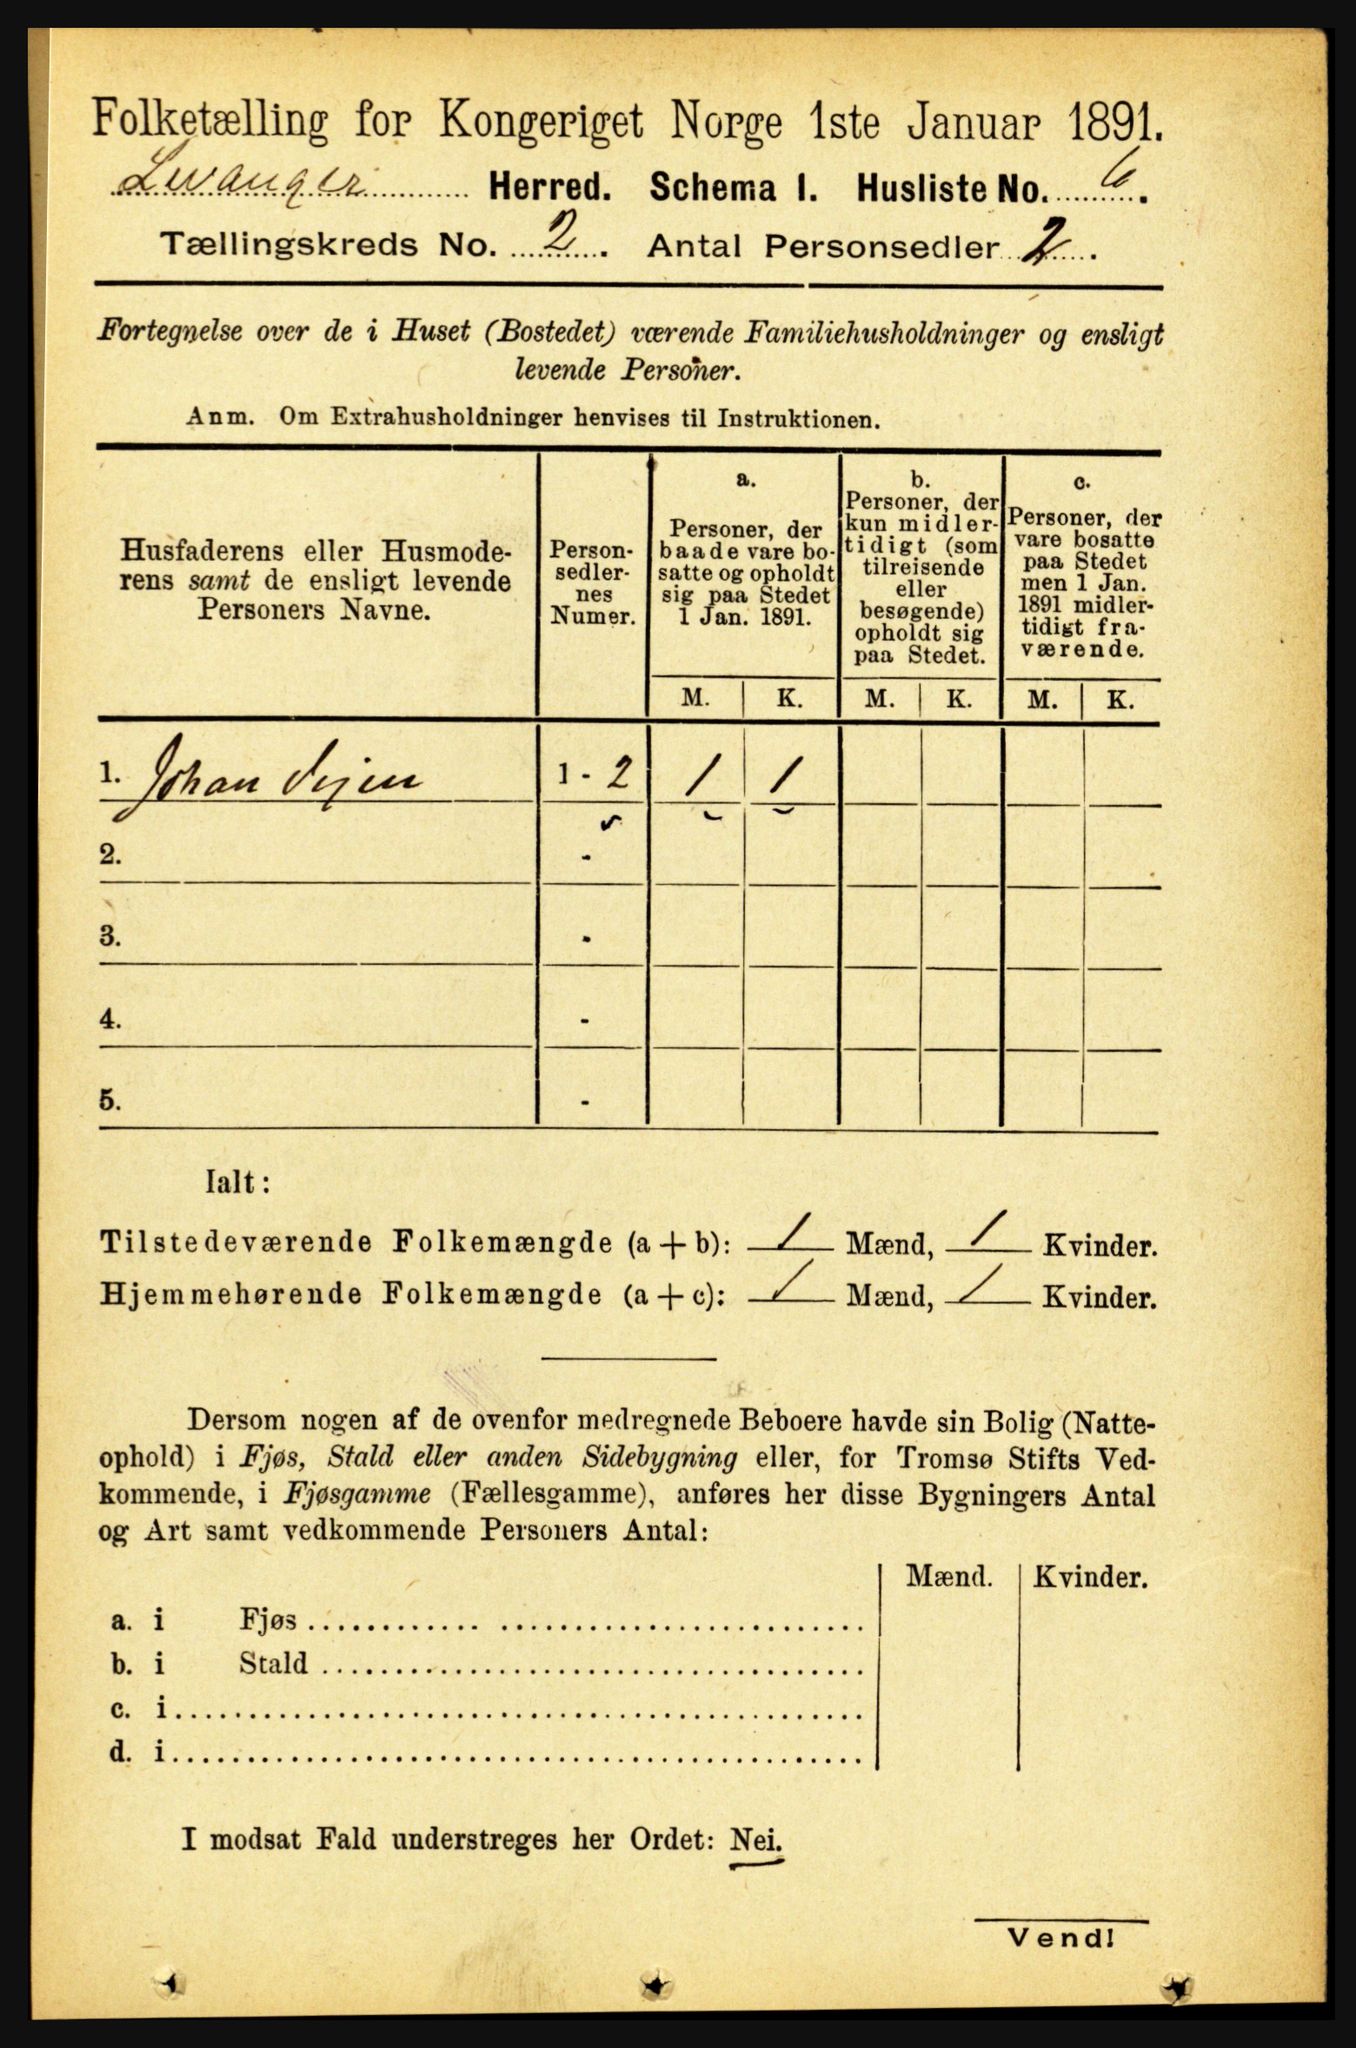 Folketælling for Kongeriget Norge 1ste Januar 1891.
Levanger Herred. Schema I. Husliste No. 6.
Tællingskreds No. 2. Antal Personsedler 2.
Fortegnelse over de i Huset (Bostedet) værende Familiehusholdninger og ensligt
levende Personer.
Anm. Om Extrahusholdninger henvises til Instruktionen.
Husfaderens eller Husmode-
rens samt de ensligt levende
Personers Navne.
Person-
sedler-
nes
Numer.
a.
Personer, der
baade vare bo-
satte og opholdt
sig paa Stedet
1 Jan. 1891.
b.
Personer, der
kun midler-
tidigt (som
tilreisende
eller
besøgende)
opholdt sig
paa Stedet.
c.
Personer, der
vare bosatte
paa Stedet
men 1 Jan.
1891 midler-
tidigt fra-
værende.
M. K. M. K. M. K.
1. Johan 1 - 2 1 1
2. -
3. -
4. -
5. -
Ialt:
Tilstedeværende Folkemængde (a + b): 1 Mænd, 1 Kvinder.
Hjemmehørende Folkemængde (a + c): 1 Mænd, 1 Kvinder.
Dersom nogen af de ovenfor medregnede Beboere havde sin Bolig (Natte-
ophold) i Fjøs, Stald eller anden Sidebygning eller, for Tromsø Stifts Ved-
kommende, i Fjøsgamme (Fællesgamme), anføres her disse Bygningers Antal
og Art samt vedkommende Personers Antal:
Mænd. Kvinder.
a. i Fjøs
b. i Stald
c. i
d. i
I modsat Fald understreges her Ordet: Nei.
Vend!